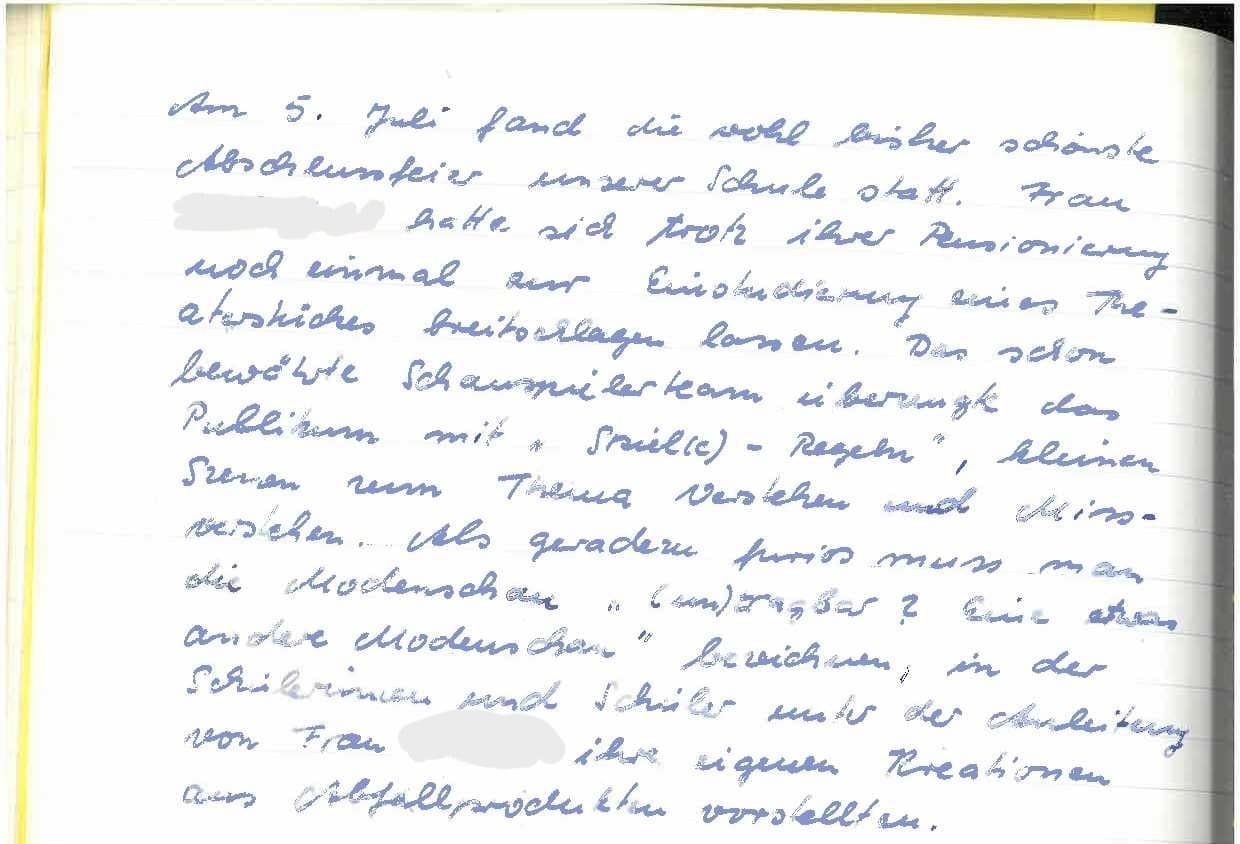 Am 5. Juli fand die wohl bisher schönste
Abschlussfeier unserer Schule statt. Frau
hatte sich trotz ihrer Pensionierung
noch einmal zur Einstudierung eines The-
aterstückes breitschlagen lassen. Das schon
bewährte Schauspielerteam überzeugte das
Publikum mit „Spiel(c) - Regeln", kleinen
Szenen zum Thema Verstehen und Miss-
verstehen. Als geradezu furios muss man
die Modenschau „(un)tragbar? Eine etwas
andere Modenschau" bezeichnen, in der
Schülerinnen und Schüler unter der Anleitung
von Frau ihre eigenen Kreationen
aus Abfallprodukten vorstellten.